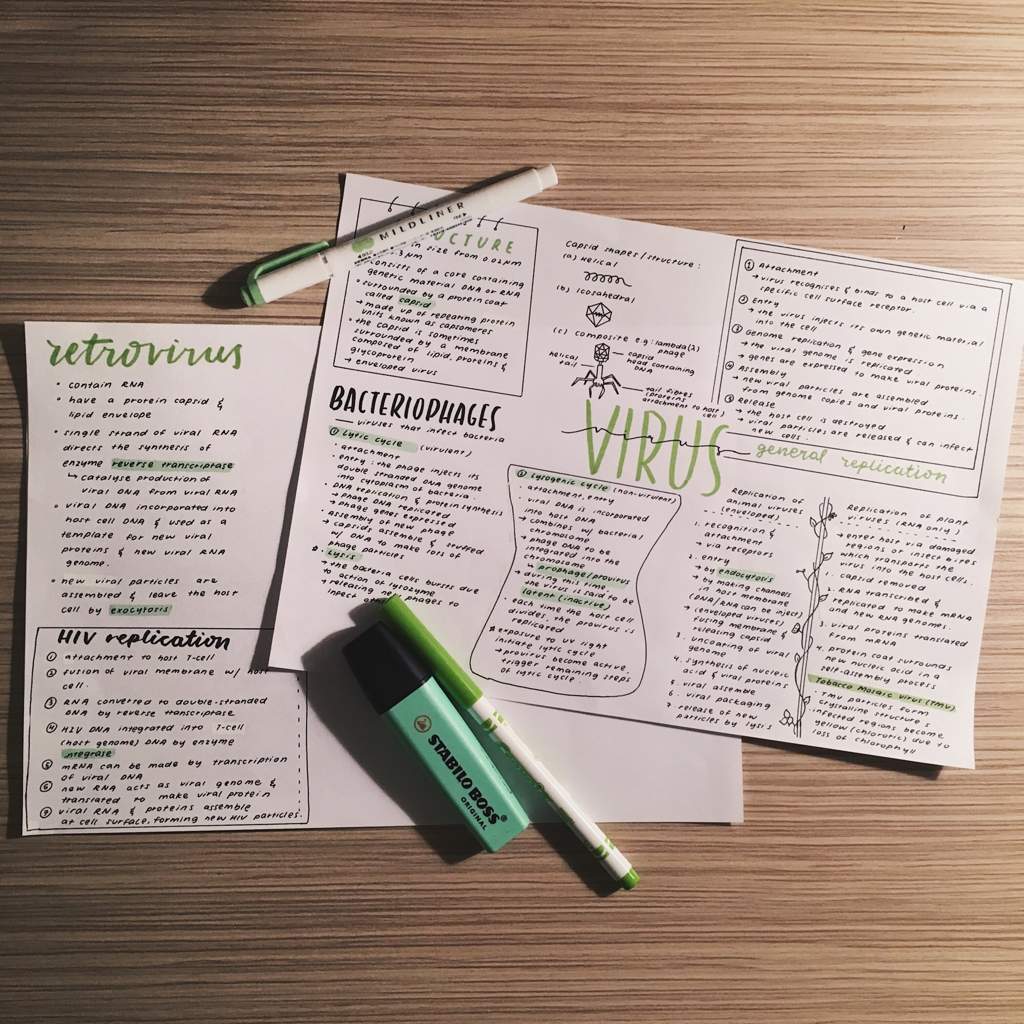 retrovirus
• contain RNA
• have a protein capsid &
lipid envelope
• single strand of viral RNA
directs the synthesis of
enzyme reverse transcriptase
↳ catalyse production of
viral DNA from viral RNA
• viral DNA incorporated into
host cell DNA & used as a
template for new viral
proteins & new viral RNA
genome.
• new viral particles are
assembled & leave the host
cell by exocytosis
HIV replication
① attachment to host T-cell
② fusion of viral membrane w/ host
cell.
③ RNA converted to double-stranded
DNA by reverse transcriptase
④ HIV DNA integrated into T-cell
(host genome) DNA by enzyme
integrase
⑤ mRNA can be made by transcription
of viral DNA
⑥ new RNA acts as viral genome &
translated to make viral protein
⑦ viral RNA & proteins assemble
at cell surface, forming new HIV particles.
MILDLINER
UCTURE
in size from 0.02µm
3µm
consists of a core containing
genetic material DNA or RNA
• surrounded by a protein coat
called capsid
→ made up of repeating protein
units known as capsomeres
• the capsid is sometimes
surrounded by a membrane
composed of lipid, proteins &
glycoprotein
→ enveloped virus
BACTERIOPHAGES
viruses that infect bacteria
① Lytic cycle (virulent)
• attachment
• entry: the phage injects its
double stranded DNA genome
into cytoplasm of bacteria.
• DNA replication & protein synthesis
→ phage DNA replicated
→ phage genes expressed
• assembly of new phage
→ capsids assemble & stuffed
w/ DNA to make lots of
phage particles
Lysis
→ the bacteria cells bursts due
to action of lysozyme
→ releasing new phages to
infect
Capsid shapes/structure:
(a) Helical
(b) Icosahedral
(c) Composite e.g: lambda(λ)
phage
helical
tail
capsid
head containing
DNA
tail fibres
(proteins
attachment to host)
cell
VIRUS
virus
general replication
① Attachment
→ virus recognises & binds to a host cell via a
specific cell surface receptor.
② Entry
→ the virus injects its own genetic material
into the cell
③ Genome replication & gene expression
→ the viral genome is replicated
→ genes are expressed to make viral proteins
④ Assembly
→ new viral particles are assembled
from genome copies and viral proteins.
⑤ Release
→ the host cell is destroyed
→ viral particles are released & can infect
new cells.
② Lysogenic cycle (non-virulent)
• attachment, entry
• viral DNA is incorporated
into host DNA
→ combines w/ bacterial
chromosome
→ phage DNA to be
integrated into the
chromosome
→ prophage/provirus
→ during this time,
the virus is said to be
latent (inactive)
• each time the host cell
divides, the provirus is
replicated
exposure to UV light
initiate lytic cycle
→ provirus become active,
trigger remaining steps
of lytic cycle.
Replication of
animal viruses
(enveloped)
1. recognition &
attachment
→ via receptors
2. entry
→ by endocytosis
→ by making channels
in host membrane
(DNA/RNA can be inject)
(enveloped viruses)
fusing membrane &
releasing capsid
3. uncoating of viral
genome
4. synthesis of nucleic
acid & viral proteins
5. viral assemble
6. viral packaging
7. release of new
particles by lysis
Replication of plant
viruses (RNA only)
→ enter host via damaged
regions or insect bites
which transports the
virus into the host cells.
1. capsid removed
2. RNA transcribed &
replicated to make mRNA
and new RNA genomes.
3. viral proteins translated
from mRNA
4. protein coat surrounds
new nucleic acid in a
self-assembly process
Tobacco Mosaic virus (TMV)
• TMV particles form
crystalline structures
infected regions become
yellow (chlorotic) due to
loss of chlorophyll
STABILO BOSS
ORIGINAL